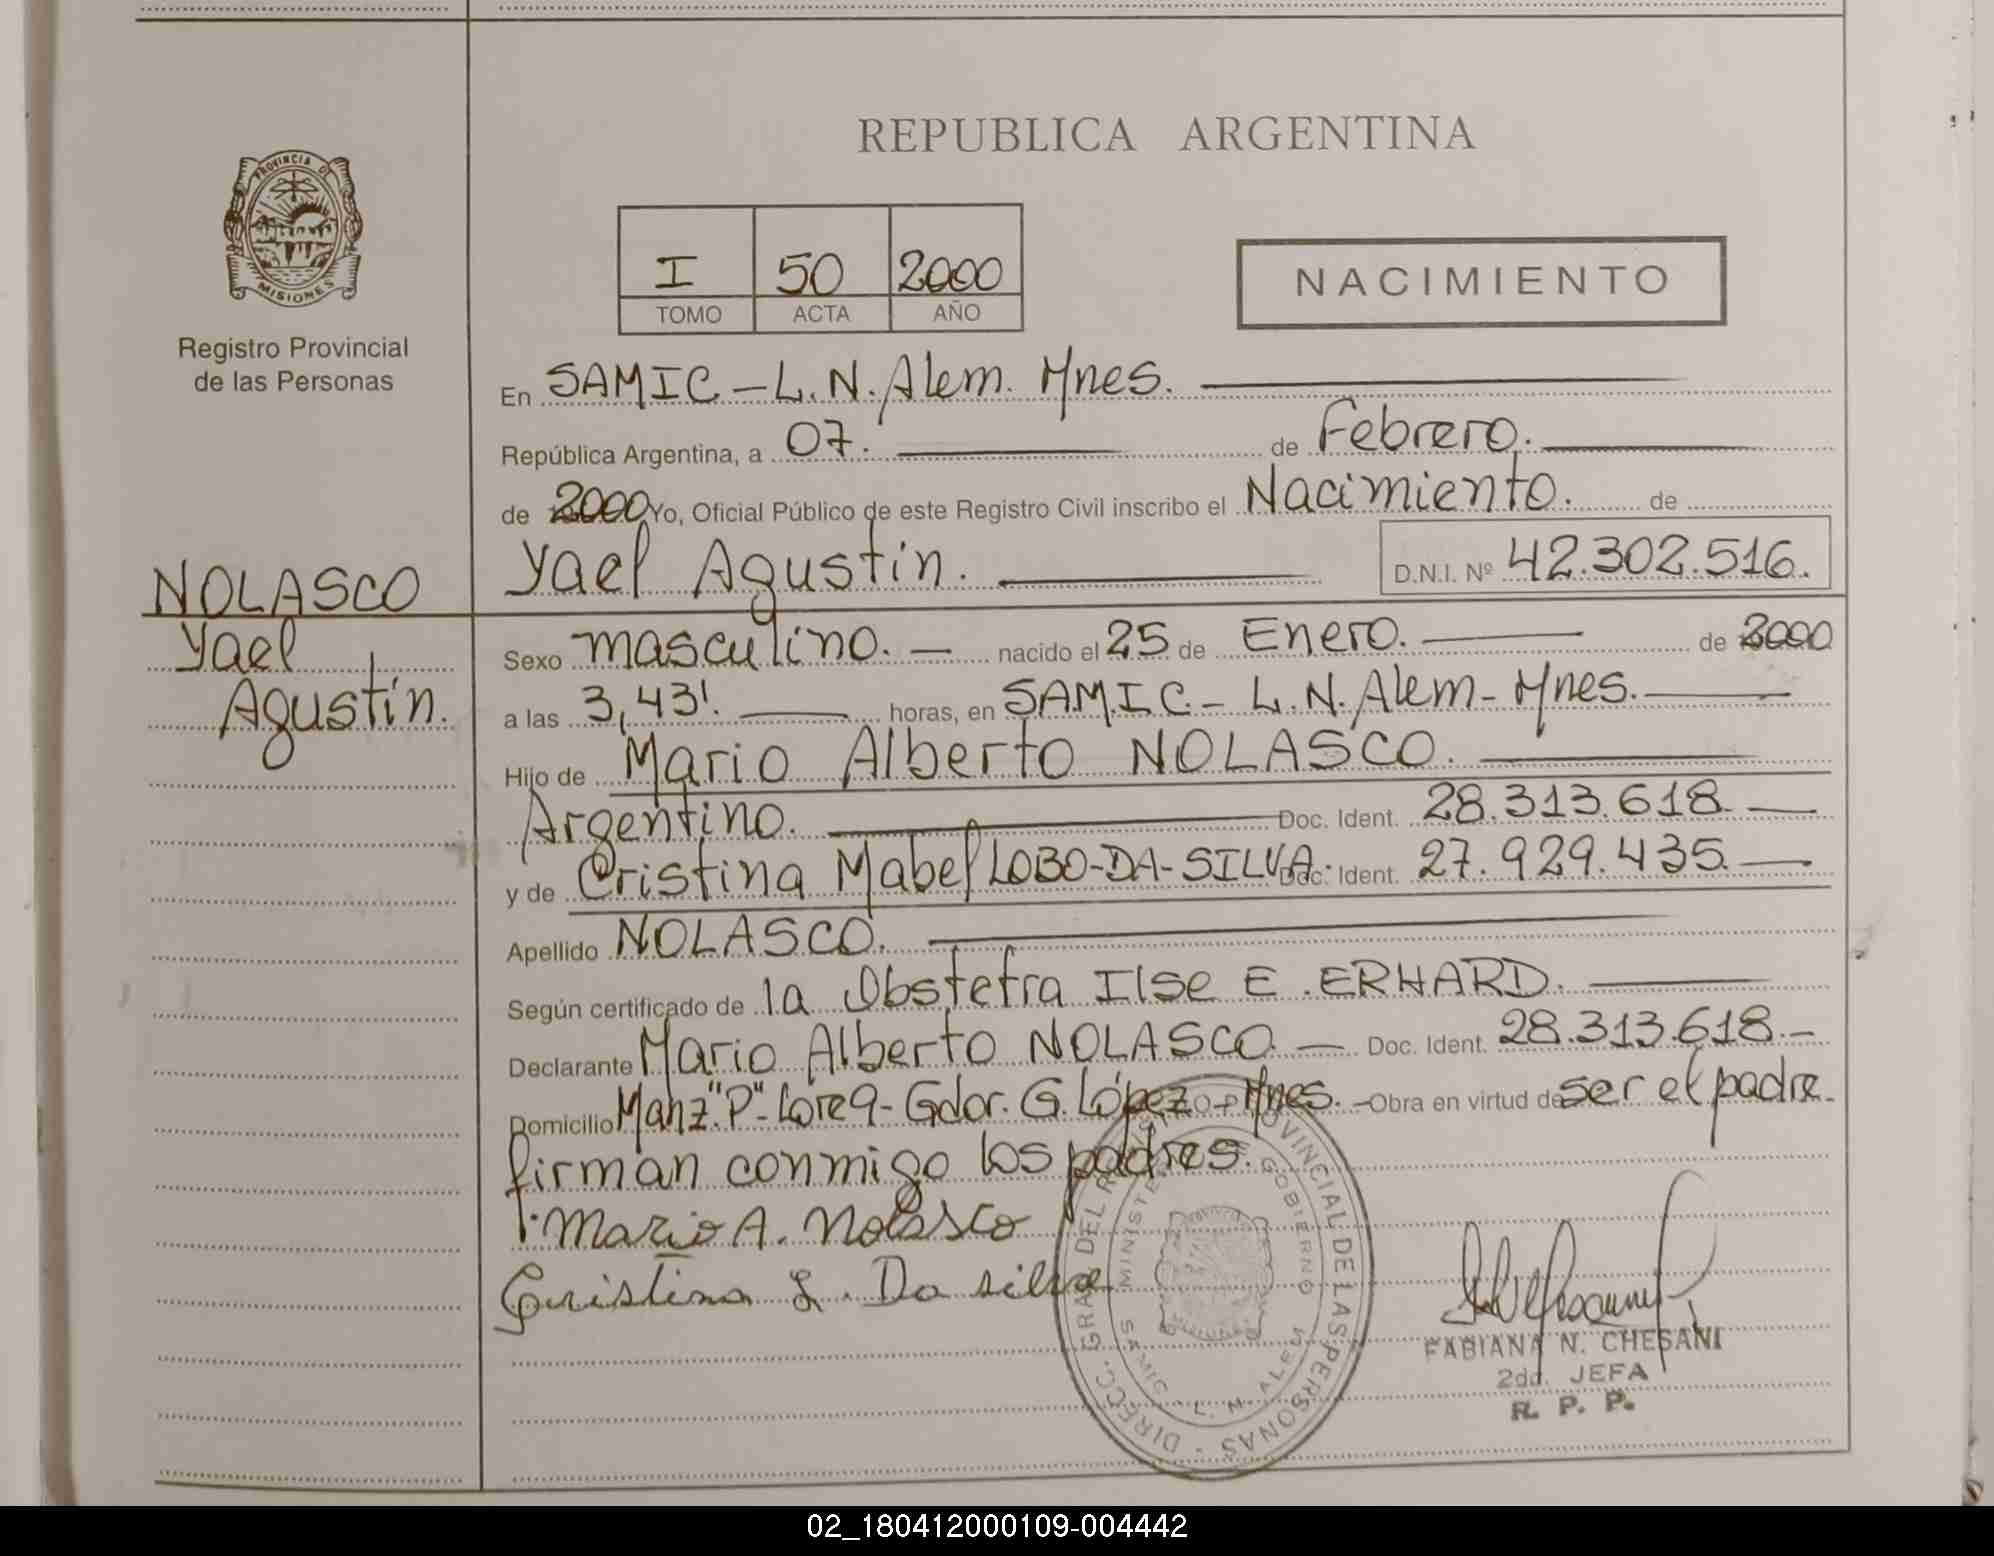 REPUBLICA ARGENTINA
PROVINCIA DE
MISIONES
Registro Provincial
de las Personas
I 50 2000
TOMO ACTA AÑO
NACIMIENTO
En SAMIC - L. N. Alem. Mnes.
República Argentina, a 07. de Febrero.
de 2000 Yo, Oficial Público de este Registro Civil inscribo el Nacimiento. de
Yael Agustín. D.N.I. Nº 42.302.516.
NOLASCO
Yael
Agustín.
Sexo masculino. nacido el 25 de Enero. de 2000
a las 3,43'. horas, en SAM.I.C. - L. N. Alem - Mnes.
Hijo de Mario Alberto NOLASCO.
Argentino. Doc. Ident. 28.313.618.
y de Cristina Mabel LOBO-DA-SILVA. Doc. Ident. 27.929.435.
Apellido NOLASCO.
Según certificado de la Obstetra Ilse E. ERHARD.
Declarante Mario Alberto NOLASCO. Doc. Ident. 28.313.618.
Domicilio Manz. "P" - Lote 9 - Gdor. G. López - Mnes. - Obra en virtud de ser el padre.
firman conmigo los padres.
Mario A. Nolasco
Cristina L. Da silva
DIRECC. GRAL. DEL REGISTRO PROVINCIAL DE LAS PERSONAS
MINISTERIO DE GOBIERNO
SAMIC L. N. ALEM
FABIANA N. CHESANI
2da. JEFA
R. P. P.
02_180412000109-004442